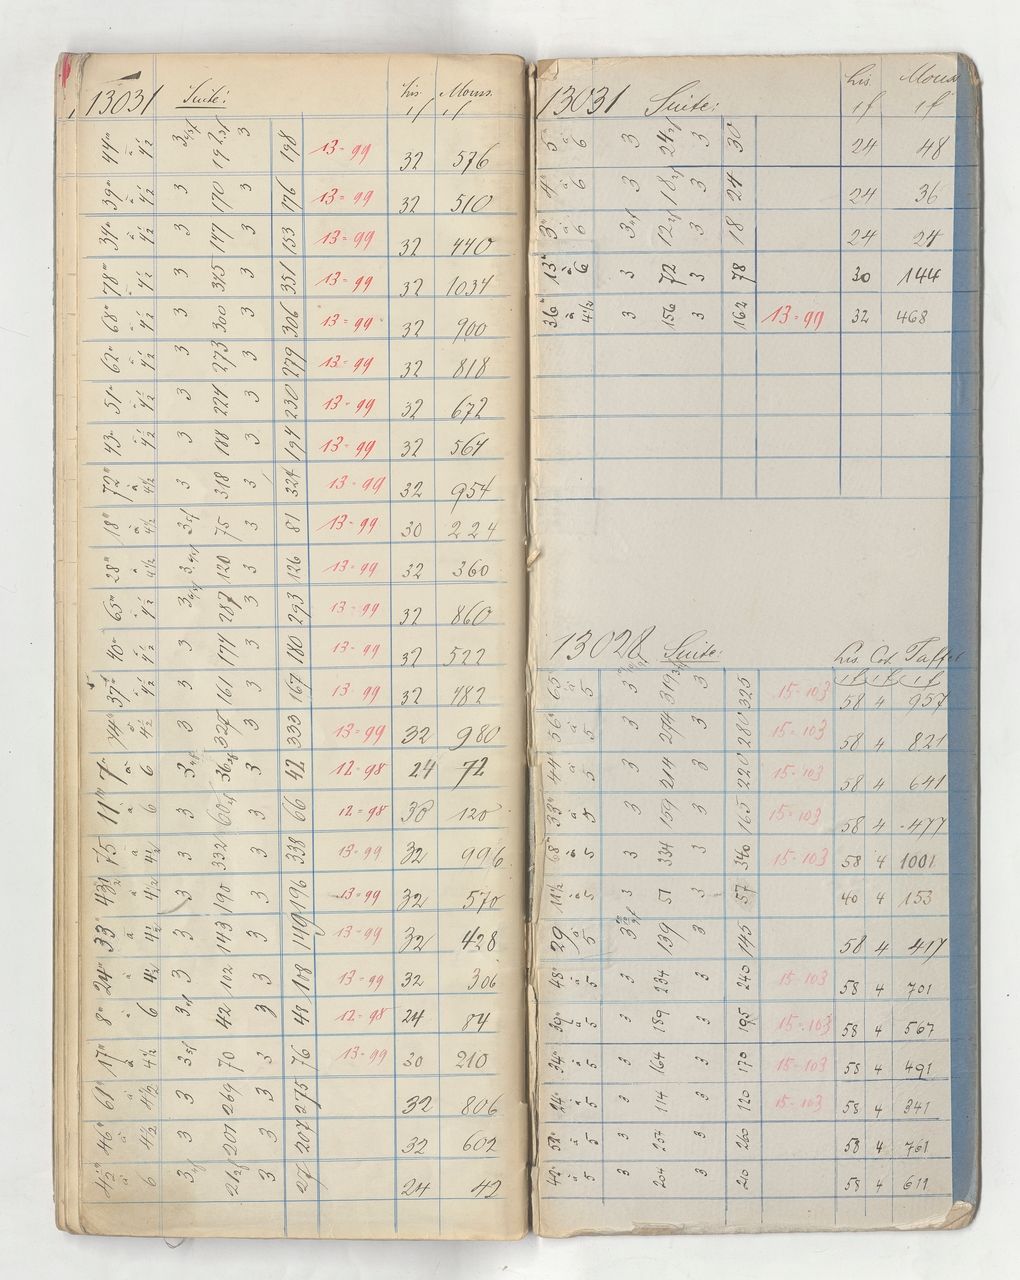 13031 Suite: lis. Mouss.
1f 1f
44" à 4½ 3 192 3 198 13=99 32 576
39" à 4½ 3 170 3 176 13=99 32 510
34" à 4½ 3 147 3 153 13=99 32 440
78" à 4½ 3 345 3 351 13=99 32 1034
68" à 4½ 3 300 3 306 13=99 32 900
62" à 4½ 3 273 3 279 13=99 32 818
51" à 4½ 3 224 3 230 13=99 32 672
43" à 4½ 3 188 3 194 13=99 32 564
72" à 4½ 3 318 3 324 13=99 32 954
18" à 4½ 3 75 3 81 13=99 30 224
28" à 4½ 3 120 3 126 13=99 32 360
65" à 4½ 3 287 3 293 13=99 32 860
40" à 4½ 3 174 3 180 13=99 32 522
37" à 4½ 3 161 3 167 13=99 32 482
74" à 4½ 3 327 3 333 13=99 32 980
7" à 6 3 36 3 42 12=98 24 72
11" à 6 3 60 3 66 12=98 30 120
75 à 4½ 3 332 3 338 13=99 32 996
43½ à 4½ 3 190 3 196 13=99 32 570
33" à 4½ 3 143 3 149 13=99 32 428
24" à 4½ 3 102 3 108 13=99 32 306
8" à 6 3 42 3 48 12=98 24 84
17" à 4½ 3 70 3 76 13=99 30 210
61" à 4½ 3 269 3 275 32 806
46" à 4½ 3 201 3 207 32 602
à 6 3 3 24 42
13031 Suite: lis. Mouss
1f 1f
5" à 6 3 24 3 30 24 48
4" à 6 3 18 3 24 24 36
3" à 6 3 12 3 18 24 24
13" à 6 3 72 3 78 30 144
36" à 4½ 3 156 3 162 13=99 32 468
13028 Suite: lis. Cot. Taffet
1f 1f 1f
65 à 5 3 319 3 325 15=103 58 4 957
56" à 5 3 274 3 280 15=103 58 4 821
44" à 5 3 214 3 220 15=103 58 4 641
33" à 5 3 159 3 165 15=103 58 4 477
68" à 5 3 334 3 340 15=103 58 4 1001
11½ à 5 3 51 3 57 40 4 153
29 à 5 3 139 3 145 58 4 417
48" à 5 3 234 3 240 15=103 58 4 701
39" à 5 3 189 3 195 15=103 58 4 567
34" à 5 3 164 3 170 15=103 58 4 491
24" à 5 3 114 3 120 15=103 58 4 341
52" à 5 3 254 3 260 58 4 761
42" à 5 3 204 3 58 4 611